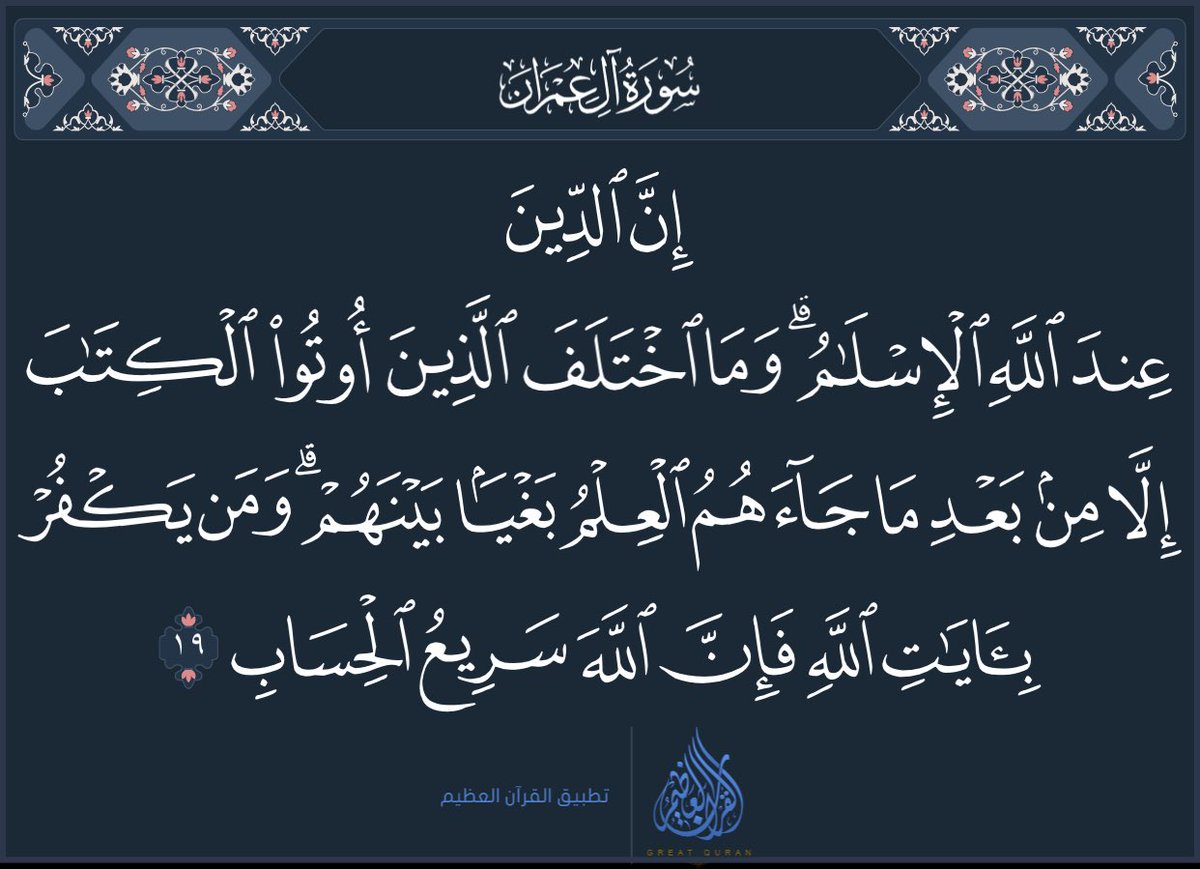 سُورَةُ آلِ عِمْرَان
إِنَّ ٱلدِّينَ
عِندَ ٱللَّهِ ٱلْإِسْلَٰمُ ۗ وَمَا ٱخْتَلَفَ ٱلَّذِينَ أُوتُوا۟ ٱلْكِتَٰبَ
إِلَّا مِنۢ بَعْدِ مَا جَآءَهُمُ ٱلْعِلْمُ بَغْيًۢا بَيْنَهُمْ ۗ وَمَن يَكْفُرْ
بِـَٔايَٰتِ ٱللَّهِ فَإِنَّ ٱللَّهَ سَرِيعُ ٱلْحِسَابِ ١٩
القرآن العظيم
تطبيق القرآن العظيم
GREAT QURAN